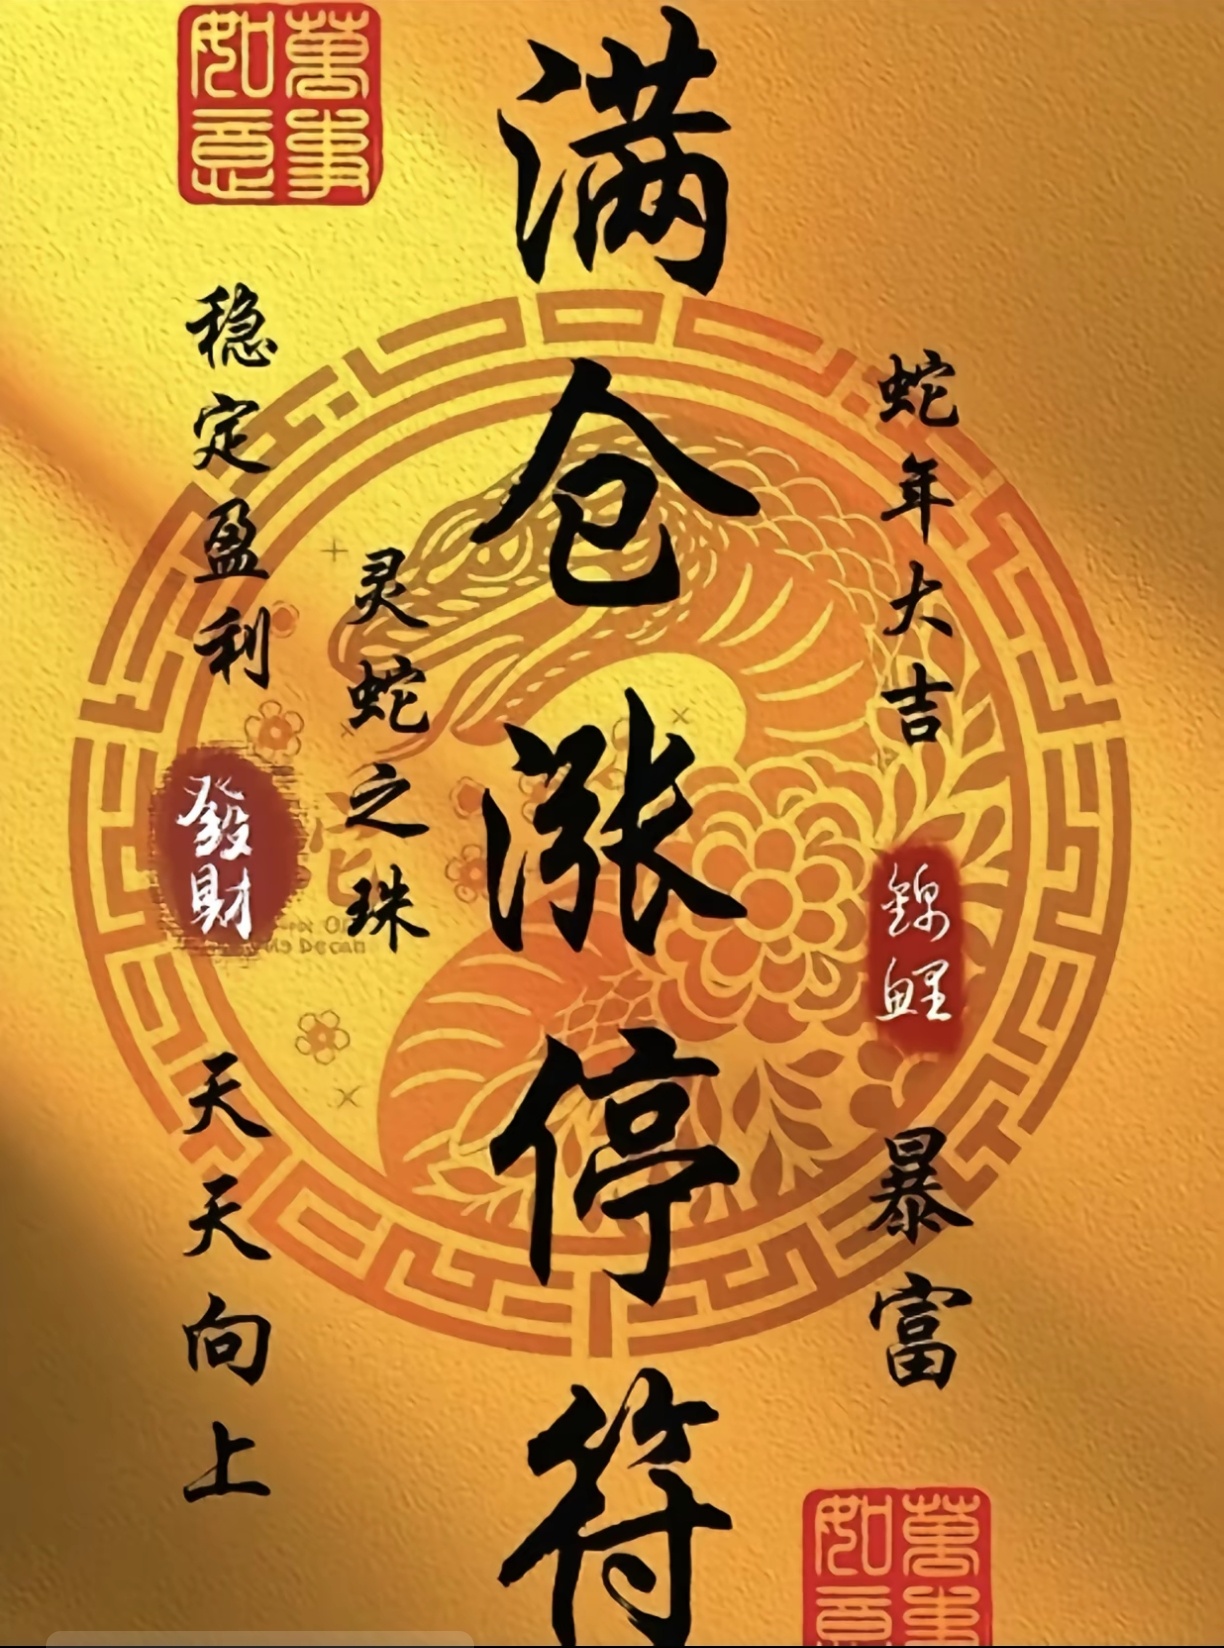 萬事如意
满仓涨停符
蛇年大吉
錦鯉
暴富
灵蛇之珠
稳定盈利
發財
天天向上
萬事如意